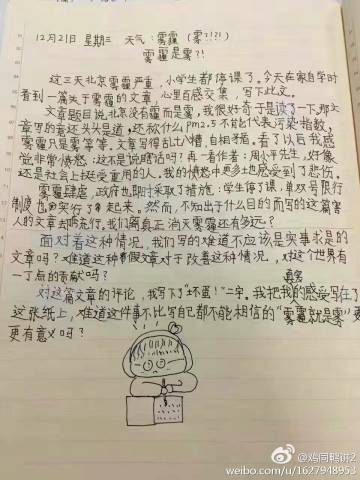 12月21日 星期三 天气:雾霾(雾?!?!)
雾霾是雾?!
这三天北京雾霾严重,小学生都停课了。今天在家自学时
看到一篇关于雾霾的文章,心里百感交集,写下此文。
文章题目说,北京没有霾而是雾。我很好奇于是读了一下,那文
章写的意还头头是道,还称什么PM2.5不能代表污染指数,
雾霾只是雾等等。文章写得乱七八糟,自相矛盾。看了以后我感
觉非常愤怒:这不是说瞎话吗?再一看作者:周小平先生,好像
还是社会上挺受重用的人,我的愤怒中更多也感受到了悲伤。
雾霾肆虐,政府也即时采取了措施:学生停课,单双号限行
制度也实行了起来。然而,不知出于什么目的而写的这篇害
人的文章去却流行。我们离真正消灭雾霾还有多远?
面对着这种情况,我们写的难道不应该是实事求是的
文章吗?难道这种假文章对于改善这种情况,对这个世界有
一丁点的贡献吗?
对这篇文章的评论,我写下了"坏蛋!"二字。我把我的真实感受写在了
这张纸上,难道这件事不比写自己都不能相信的"雾霾就是雾"更
更有意义吗?
@鸡同鸭讲2
weibo.com/u/1627948953